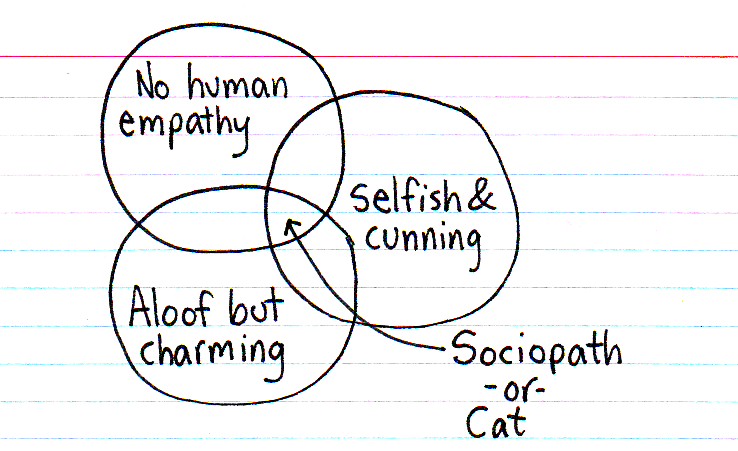 No human
empathy
Selfish &
cunning
Aloof but
charming
Sociopath
-or-
Cat